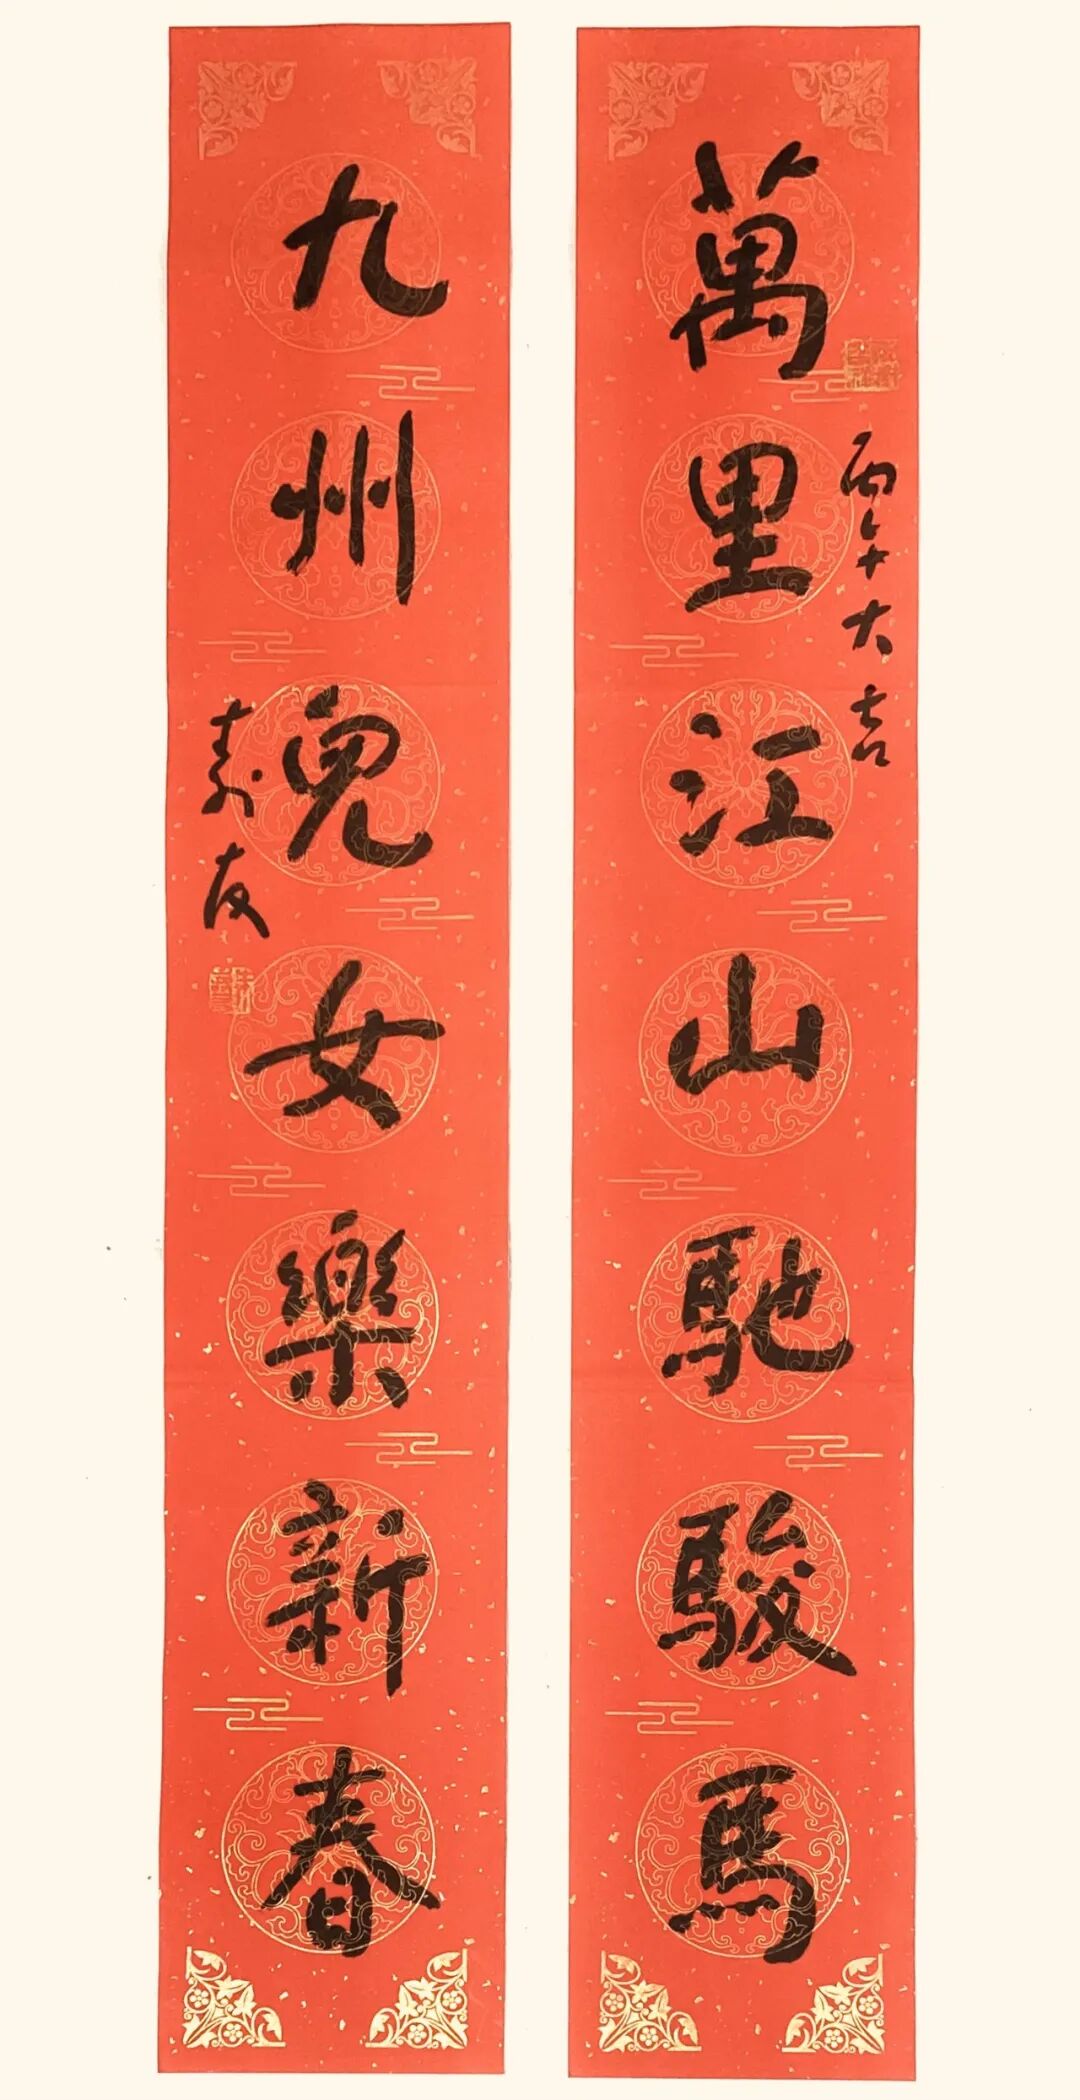 萬里江山馳駿馬
丙午大吉
九州兒女樂新春
壽友